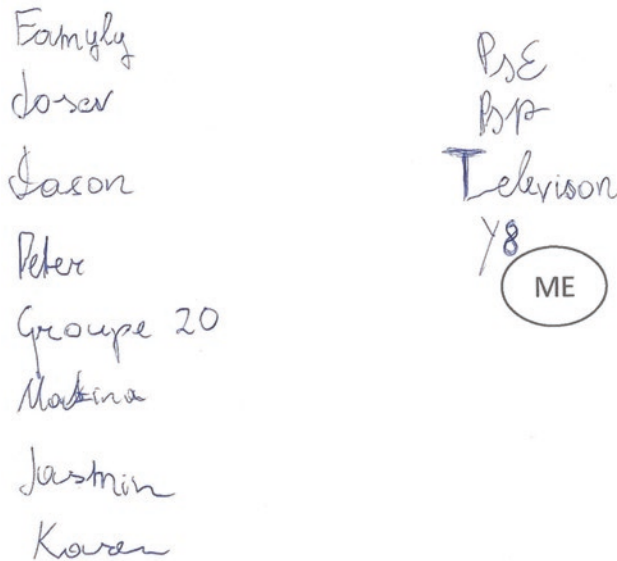 Famyly
Jason
Peter
Groupe 20
Jasmin
Karen
PSE
PSP
Televison
Y8
ME